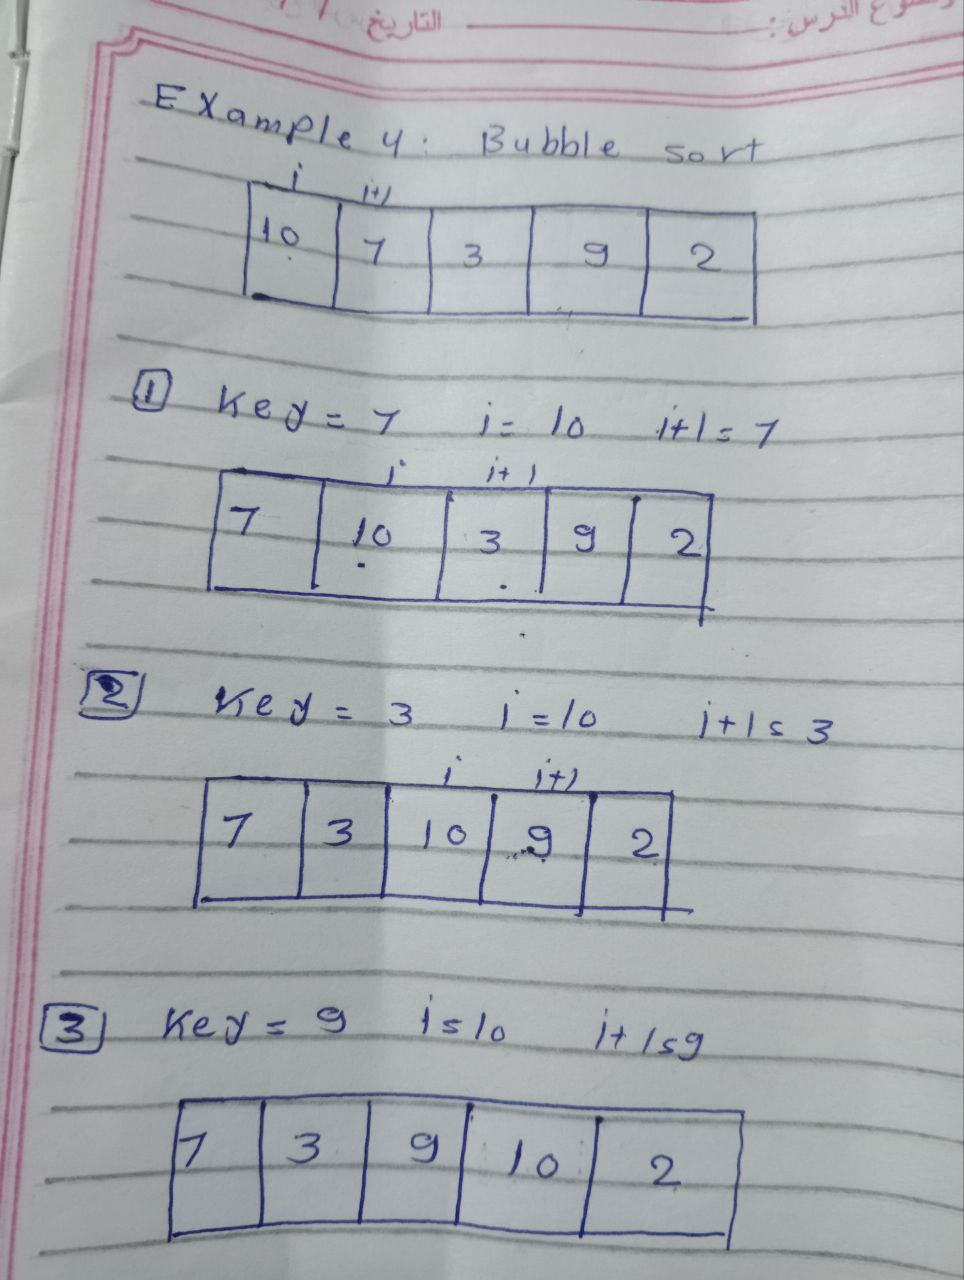 التاريخ
Example 4: Bubble sort
i i+1
10 7 3 9 2
1 Key = 7 i = 10 i+1 = 7
i i+1
7 10 3 9 2
2 Key = 3 i = 10 i+1 = 3
i i+1
7 3 10 9 2
3 Key = 9 i = 10 i+1 = 9
7 3 9 10 2